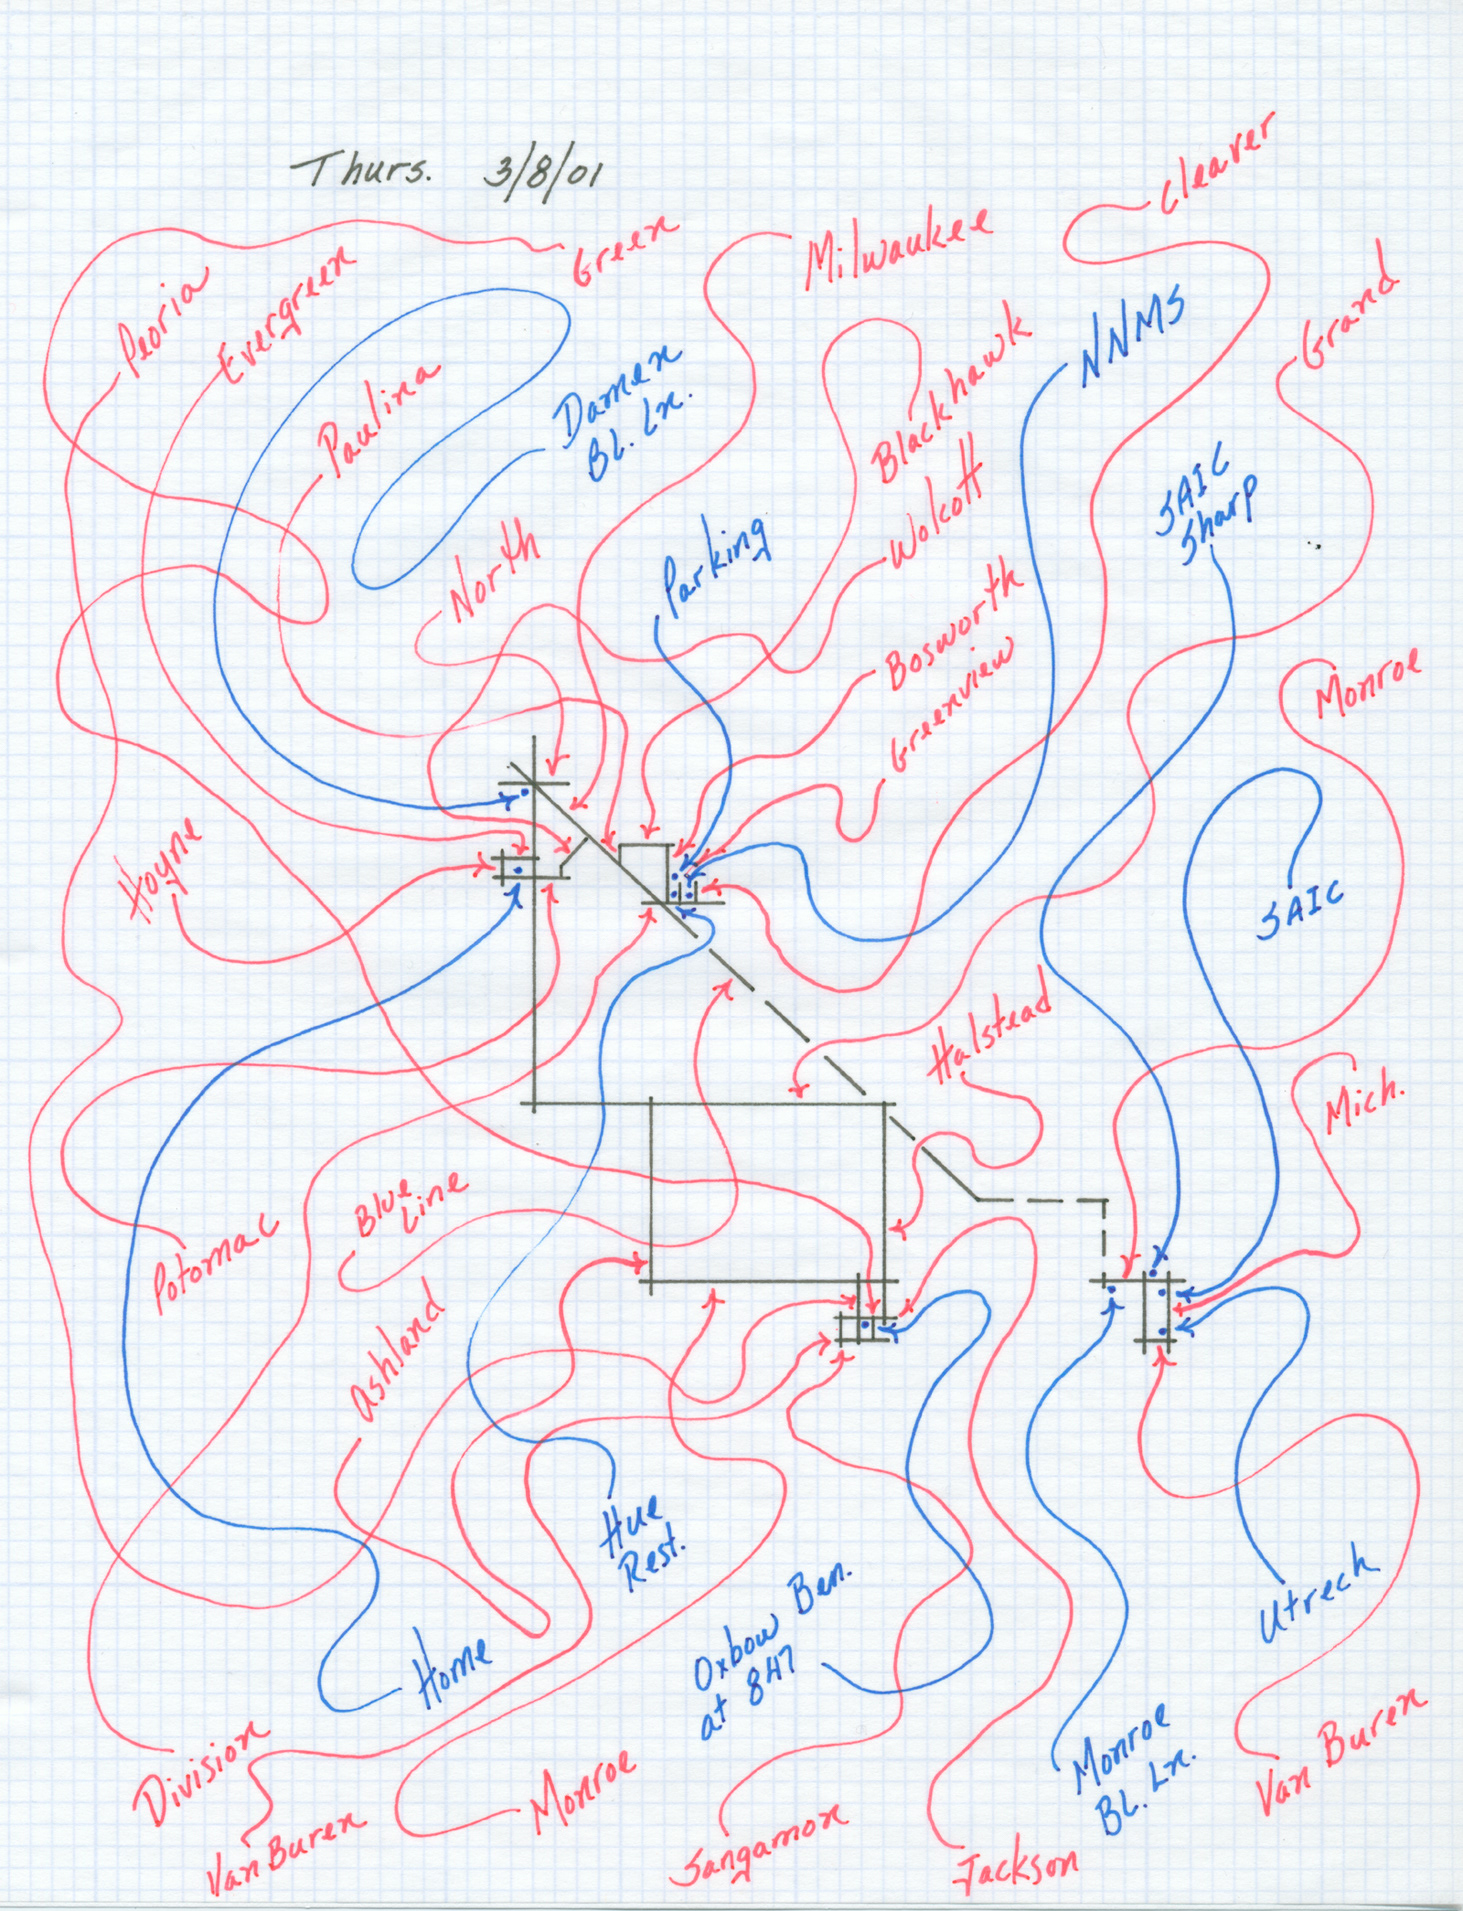 Thurs. 3/8/01
Cleaver
Green
Milwaukee
Peoria
Evergreen
Grand
NNMS
Paulina
Damen
BL. Ln.
Blackhawk
Wolcott
SAIC
Sharp
North
Parking
Bosworth
Greenview
Monroe
Hoyne
SAIC
Halstead
Mich.
Blue
Line
Potomac
Ashland
Hue
Rest.
Oxbow Ben.
at 847
Utrech
Home
Division
Van Buren
Monroe
Sangamon
Jackson
Monroe
BL. Ln.
Van Buren